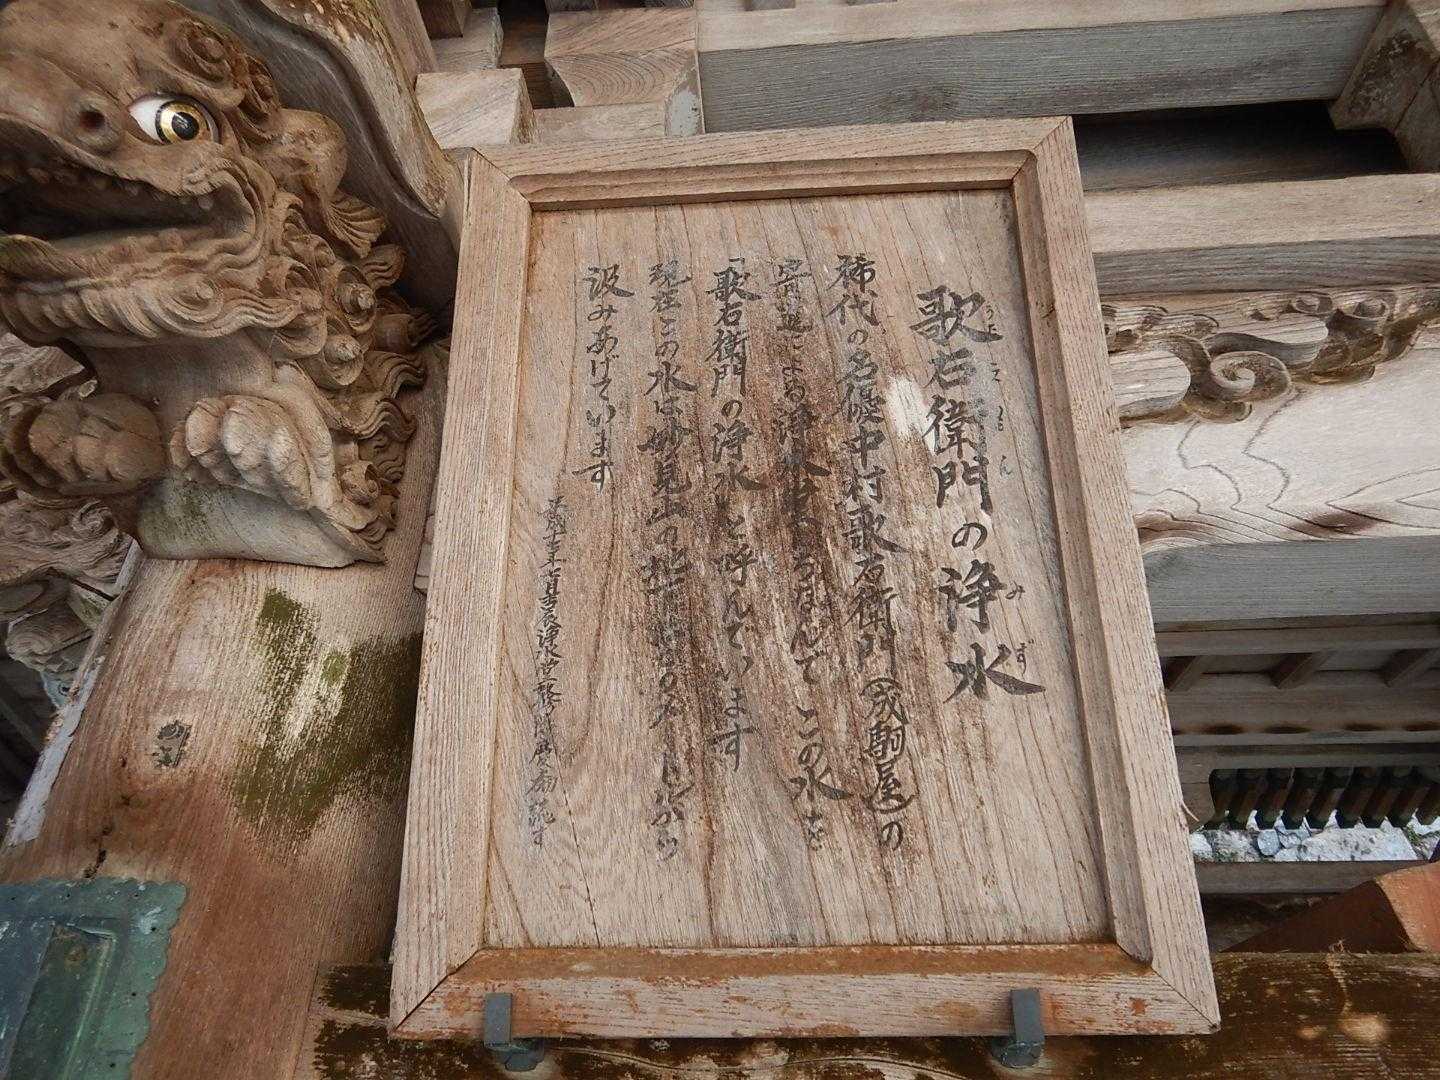 歌右衛門の浄水
うた え もん み ず
稀代の名優中村歌右衛門(成駒屋)の
寄進による浄水堂にちなんで この水を
「歌右衛門の浄水」と呼んでいます
現在この水は妙見山の地下
汲みあげています